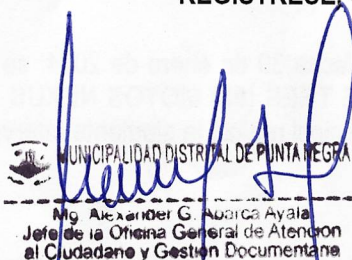 REGÍSTRESE,
MUNICIPALIDAD DISTRITAL DE PUNTA NEGRA
Mg. Alexander G. Abarca Ayala
Jefe de la Oficina General de Atención
al Ciudadano y Gestión Documentaria